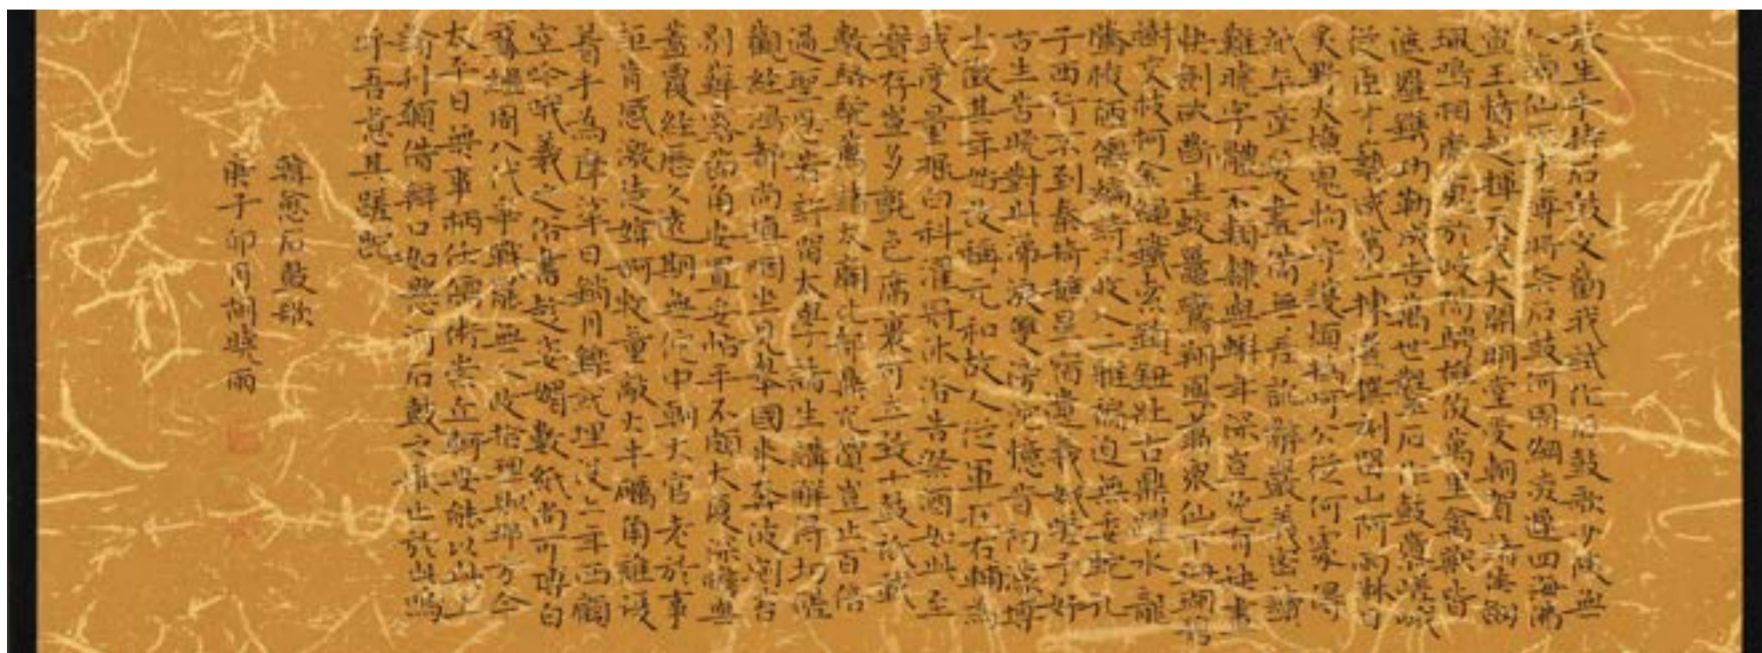 張生手持石鼓文勸我試作石鼓歌少陵無
人謫仙死才薄將奈石鼓何周綱凌遲四海沸
宣王憤起揮天戈大開明堂受朝賀諸侯劍
珮鳴相磨蒐於岐陽騁雄俊萬里禽獸皆
遮羅鐫功勒成告萬世鑿石作鼓隳嵯峨
從臣才藝咸第一揀選撰刻留山阿雨淋日
炙野火燎鬼物守護煩撝呵公從何處得
紙本毫髮盡備無差訛辭嚴義密讀
難曉字體不類隸與蝌年深豈免有缺畫
快劍斫斷生蛟鼉鸞翔鳳翥眾仙下珊瑚碧
樹交枝柯金繩鐵索鎖鈕壯古鼎躍水龍
騰梭陋儒編詩不收入二雅褊迫無委蛇孔
子西行不到秦掎摭星宿遺羲娥嗟予好
古生苦晚對此涕淚雙滂沱憶昔初蒙博
士徵其年始改稱元和故人從軍在右輔為
我度量掘臼科濯冠沐浴告祭酒如此至
寶存豈多氈包席裹可立致十鼓祇載
數駱駝薦諸太廟比郜鼎光價豈止百倍
過聖恩若許留太學諸生講解得切磋
觀經鴻都尚填咽坐見舉國來奔波剜苔
剔蘚露節角安置妥帖平不頗大廈深簷與
蓋覆經歷久遠期無佗中朝大官老於事
詎肯感激徒媕婀牧童敲火牛礪角誰復
著手為摩挲日銷月鑠就埋沒六年西顧
空吟哦羲之俗書趁姿媚數紙尚可博白
鵝繼周八代爭戰罷無人收拾理則那方今
太平日無事柄任儒術崇丘軻安能以此上
論列願借辯口如懸河石鼓之歌止於此嗚
呼吾意其蹉跎
韓愈石鼓歌
庚子卯月胡曉雨